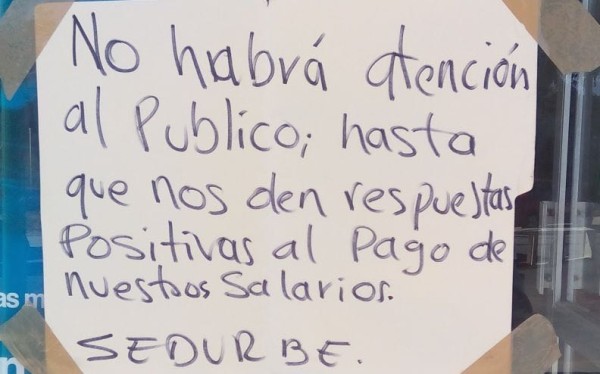 No habrá atención
al Publico; hasta
que nos den respuestas
Positivas al Pago de
nuestros Salarios.
SEDURBE.
as m